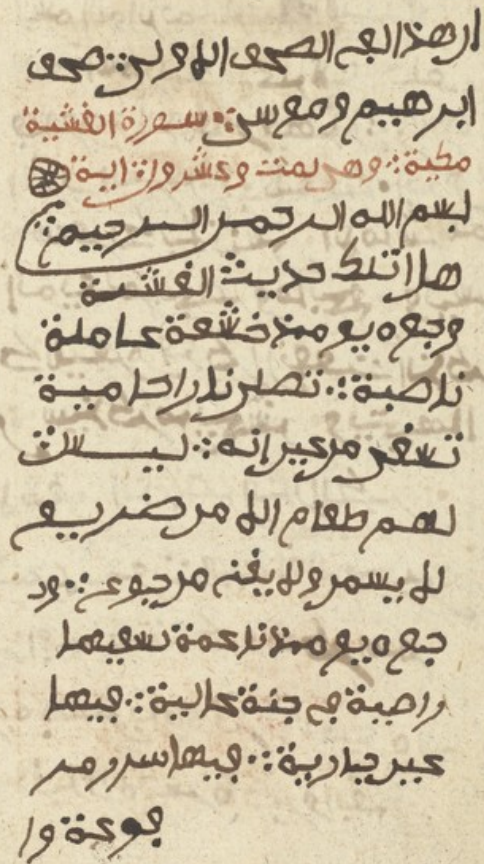 ان هذا لفي الصحف الاولى ∴ صحف
ابرهيم وموسى ∴ سورة الغشية
مكية ∴ وهي ست وعشرون اية
بسم الله الرحمن الرحيم ∴
هل اتىك حديث الغشية
وجوه يومئذ خشعة عاملة
ناصبة ∴ تصلى نارا حامية
تسقى من عين انية ∴ ليست
لهم طعام الا من ضريع
لا يسمن ولا يغني من جوع ∴ و
جوه يومئذ ناعمة لسعيها
راضية في جنة عالية ∴ فيها
عين جارية ∴ فيها سرر مر
فوعة وا